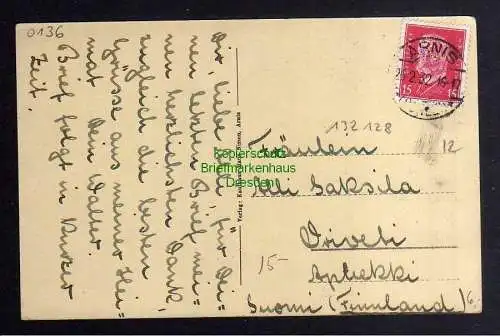 0136
Dir, liebe Elli, für Dei-
nen letzten Brief mei-
nen herzlichsten Dank,
zugleich die besten
Grüsse aus meiner Hei-
mat Dein Walter.
Brief folgt in kurzer
Zeit.
ARNIS
2.32.
15 15
132 128
12
Kopierschutz
Briefmarkenhaus
Dresden
Fräulein
Elli Saksila
Orivesi
Apteekki
15-
Suomi (Finnland)
Verlag: Arnis